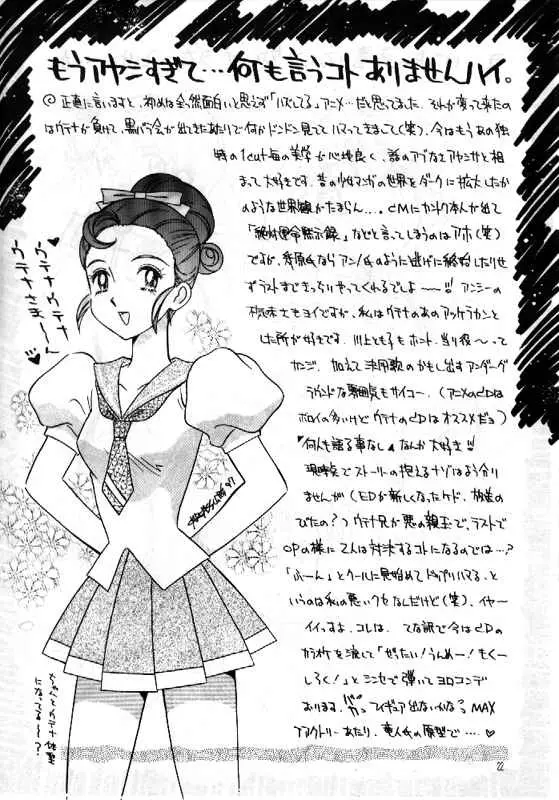 もうアヤシすぎて…何も言うコトありませんハイ。
◎正直に言いますと、初めは全然面白いと思えず「ハズしてる」アニメ…だと思ってました。それが変って来たの
はウテナが負けて、黒バラ会が出てきたあたりで何かドンドン見ててハマってきまして(笑)、今はもうあの独
特の1cut毎の美学が心地良く、話のアブなさとアヤシサと相
まって大好きです。昔の少女マンガの世界をダークに拡大したか
のような世界観がたまらん…。CMにカントク本人が出て
「絶対運命黙示録」などと言ってしまうのはアホ(笑)
ですが、幾原氏ならアンノ氏のように逃げに終始したりせ
ずラストまできっちりやってくれるでしょ〜〜!!! アンシーの
もヨイですが、私はウテナのあのアッケラカンと
した所が好きです。川上とも子もホント、当り役〜って
カンジ。加えて決闘歌のかもし出すアンダーグ
ラウンドな雰囲気もサイコー。(アニメのCDは
ボロイの多いけどウテナのCDはオススメだょ)
"何人も語る事なし"なんか大好き!!
現時点でストーリーの抱えるナゾはよう分り
ませんが(EDが新しくなったケド、
びたの?)ウテナ兄が悪の親玉で、ラストで
OPの様に2人は対決するコトになるのでは…?
「ふーん」とクールに見始めてドップリハマる、と
いうのは私の悪いクセなんだけど(笑)、イヤー
イイっすよ、コレは。 てな訳で今はCDの
カラオケを流して「ぜったい!うんめー!もくー
しろく!」とミンセで弾いてヨロコンデ
おります。フィギュア出ないかな? MAX
ファクトリーあたり、竜人氏の原型で……♥
ウテナ ウテナ
ウテナさま〜〜ん
'97
22